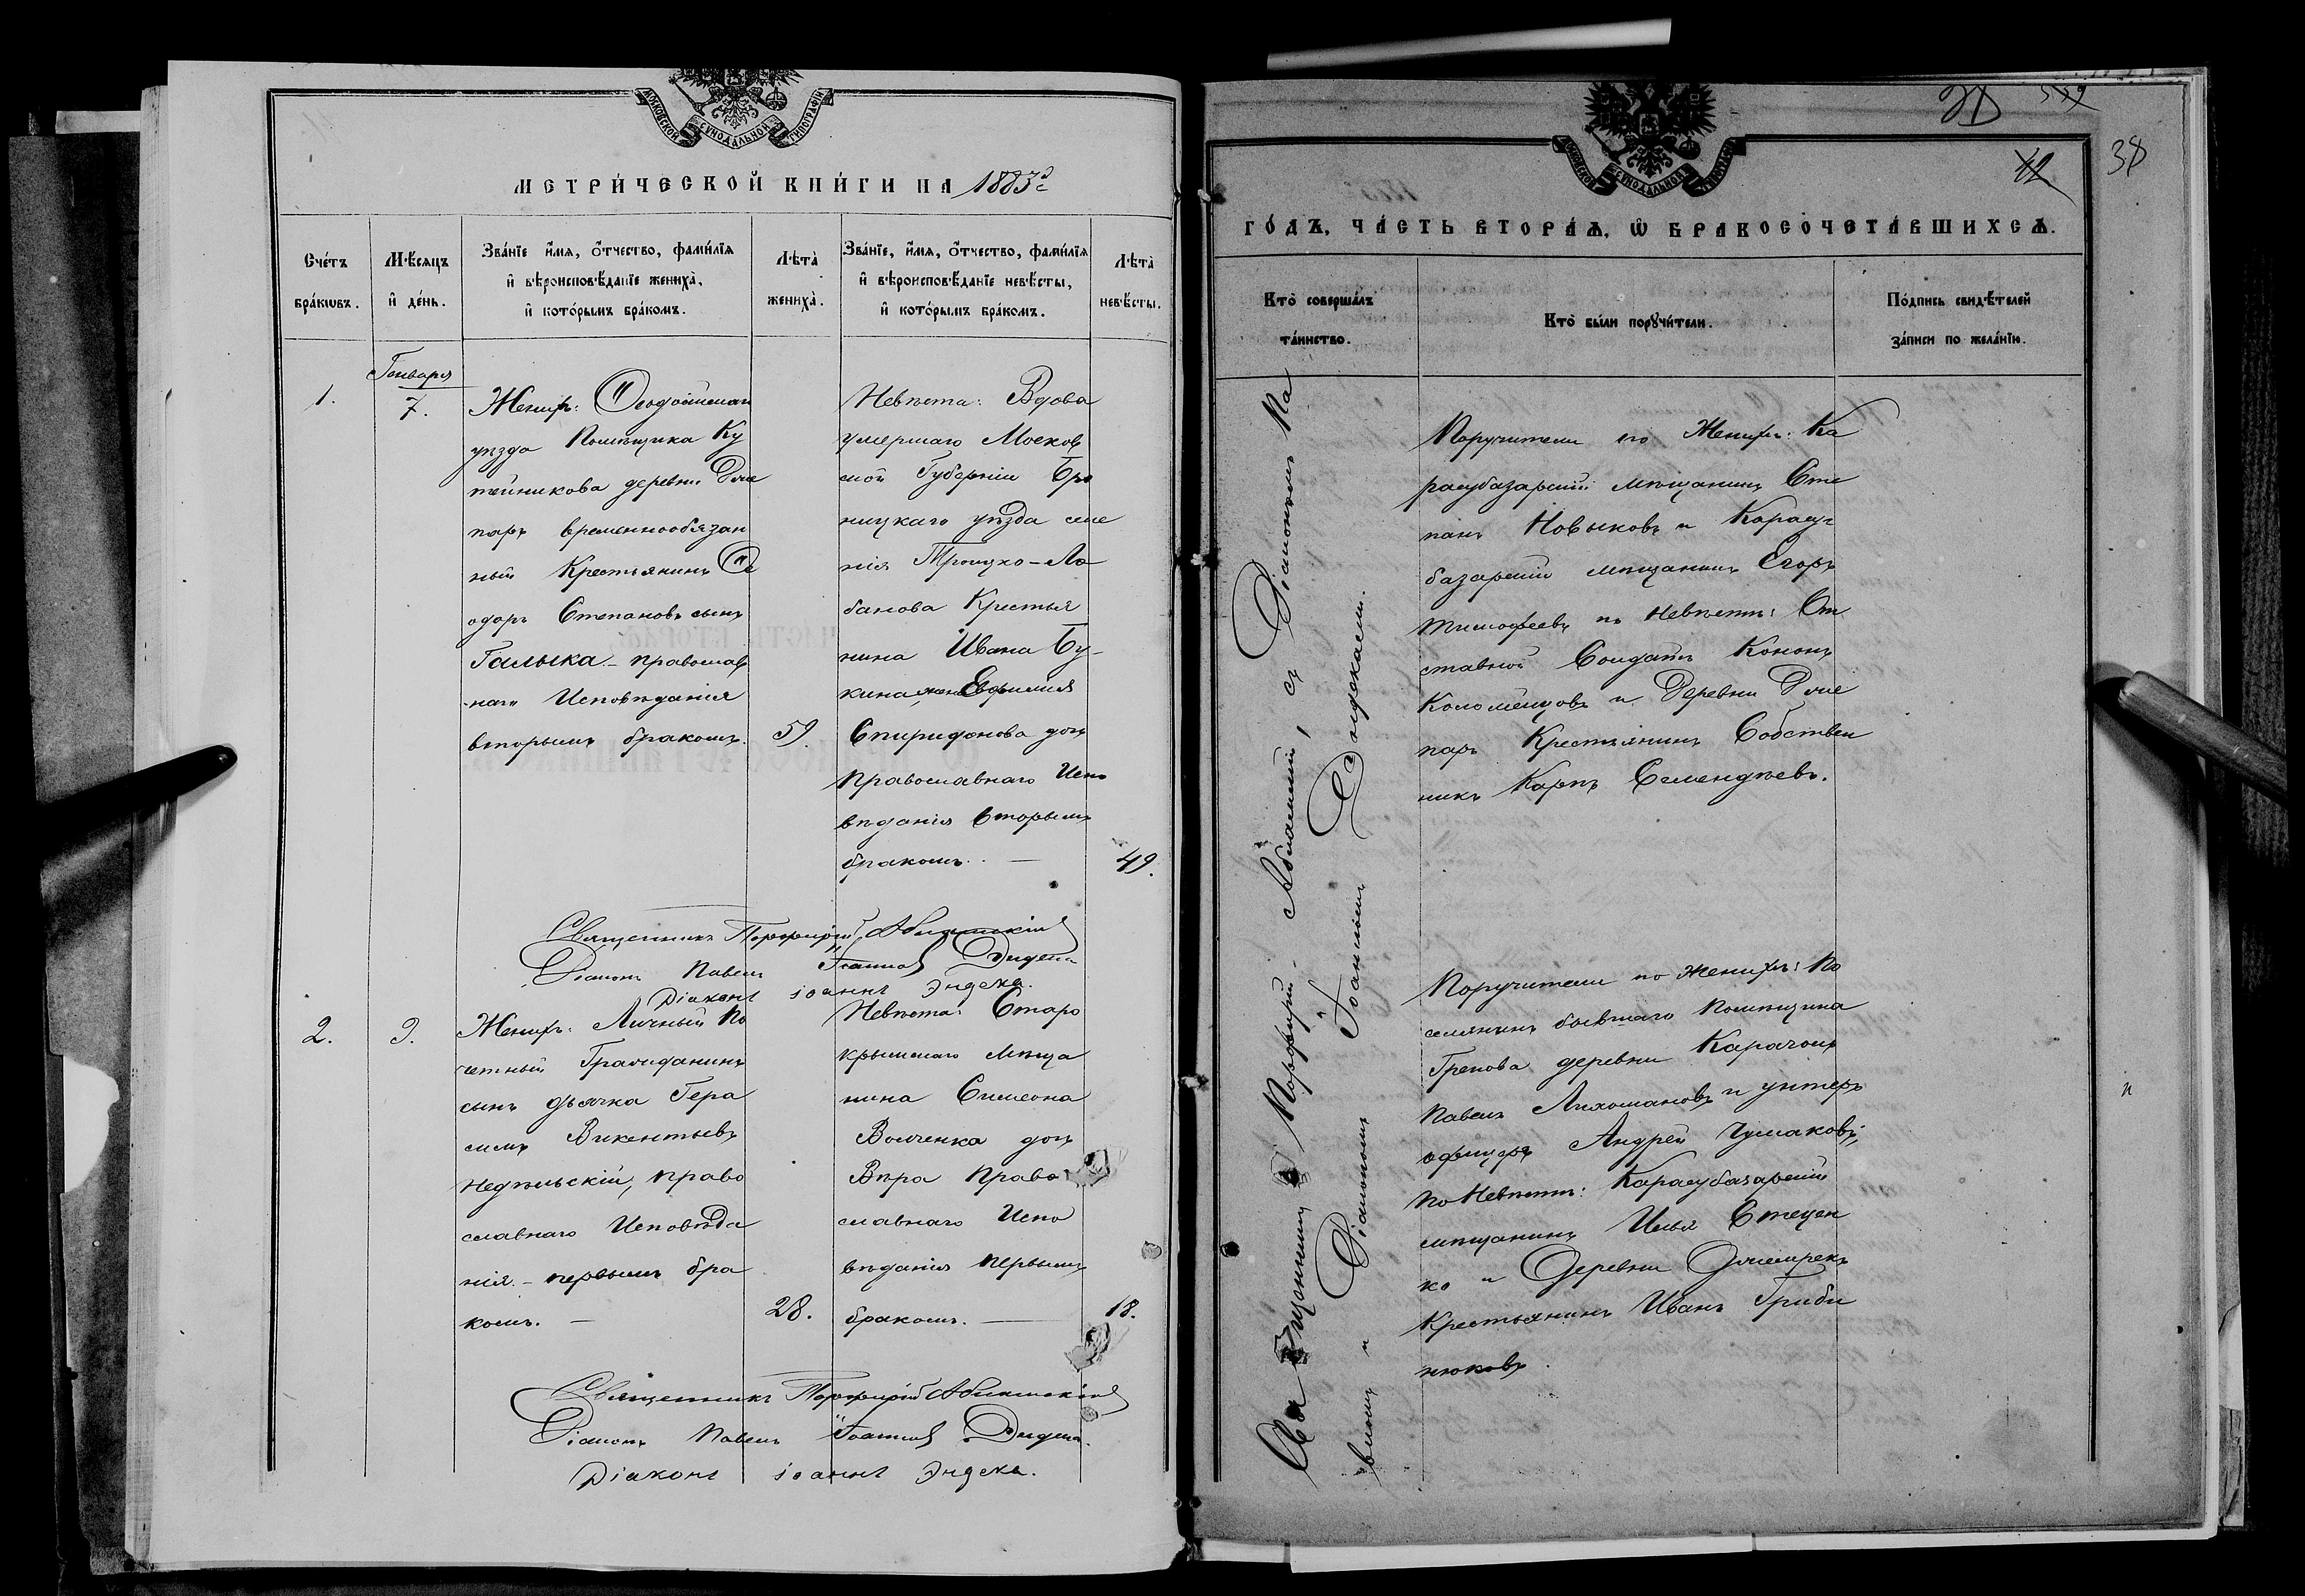 МОСКОВСКОЙ СѴНОДАЛЬНОЙ ТИПОГРАФІИ
МЕТРИ́ЧЕСКОЙ КНИ́ГИ НА 1883 г.
Сче́тъ бра́кѡвъ.
М҆ѣсяцъ и҆ де́нь.
Зва́нїе и҆́мя, ѻ҆́тчество, фами́лїя
и҆ вѣроисповѣ́данїе жениха̀,
и҆ кото́рымъ бра́комъ.
Лѣта̀ жениха̀.
Зва́нїе, и҆́мя, ѻ҆́тчество, фами́лїя
и҆ вѣроисповѣ́данїе невѣ́сты,
и҆ кото́рымъ бра́комъ.
Лѣта̀ невѣ́сты.
1.
Генваря
7.
Женихъ: Ѳеодосійскаго
уѣзда Помѣщика Ку
тейникова деревни
паръ временнообязан
ный Крестьянинъ Ѳе
одоръ Степановъ сынъ
Галыка - православ
наго Исповѣданія
вторымъ бракомъ.
59.
Невѣста: Вдова
умершаго Москов
ской Губерніи Бро
ницкаго уѣзда селе
нія Троицко-Ло
банова Крестья
нина Ивана Бу-
кина жена Евфимія
Спиридонова дочь
Православнаго Испо
вѣданія вторымъ
бракомъ. —
49.
Священникъ Порфирій Абламскій
Діаконъ Павелъ
Діаконъ Іоаннъ Эндека.
2.
9.
Женихъ: Личный По
четный Гражданинъ
сынъ дьячка Гера
симъ Викентьевъ
Недѣльскій, право
славнаго Исповѣда
нія. - первымъ бра
комъ. —
28.
Невѣста: Старо
крымскаго Мѣща
нина Симеона
Волченка дочь
Вѣра Право
славнаго Испо
вѣданія первымъ
бракомъ. —
18.
Священникъ Порфирій Абламскій
Діаконъ Павелъ
Діаконъ Іоаннъ Эндека.
539
12
38
МОСКОВСКОЙ СѴНОДАЛЬНОЙ ТИПОГРАФІИ
ГО́ДЪ, ЧА́СТЬ ВТОРА́Ѧ, Ѡ҆ БРАКОСОЧЕТА́ВШИХСѦ.
Кто̀ соверша́лъ
та́инство.
Кто̀ бы́ли порꙋчи́тели.
По́дпись свидѣ́телей
за́писи по жела́нїю.
Священникъ Порфирій Абламскій, съ Діакономъ Па
вломъ и Діакономъ Іоанномъ Эндекаемъ.
Поручители по Женихѣ: Ка
расубазарскій мѣщанинъ Сте
панъ Новыковъ и Карасу-
базарскій мѣщанинъ Егоръ
Тимофеевъ по Невѣстѣ: От
ставной Солдатъ Кононъ
Коломейцовъ и Деревни
паръ Крестьянинъ Собствен
никъ Карпъ
Поручители по Женихѣ: По
селянинъ бывшаго Помѣщика
Грекова деревни Карачоль
Павелъ и унтеръ
офицеръ Андрей Чумаковъ,
по Невѣстѣ: Карасубазарскій
мѣщанинъ Илья Стецен
ко и Деревни
Крестьянинъ Иванъ Гриби
нюковъ.